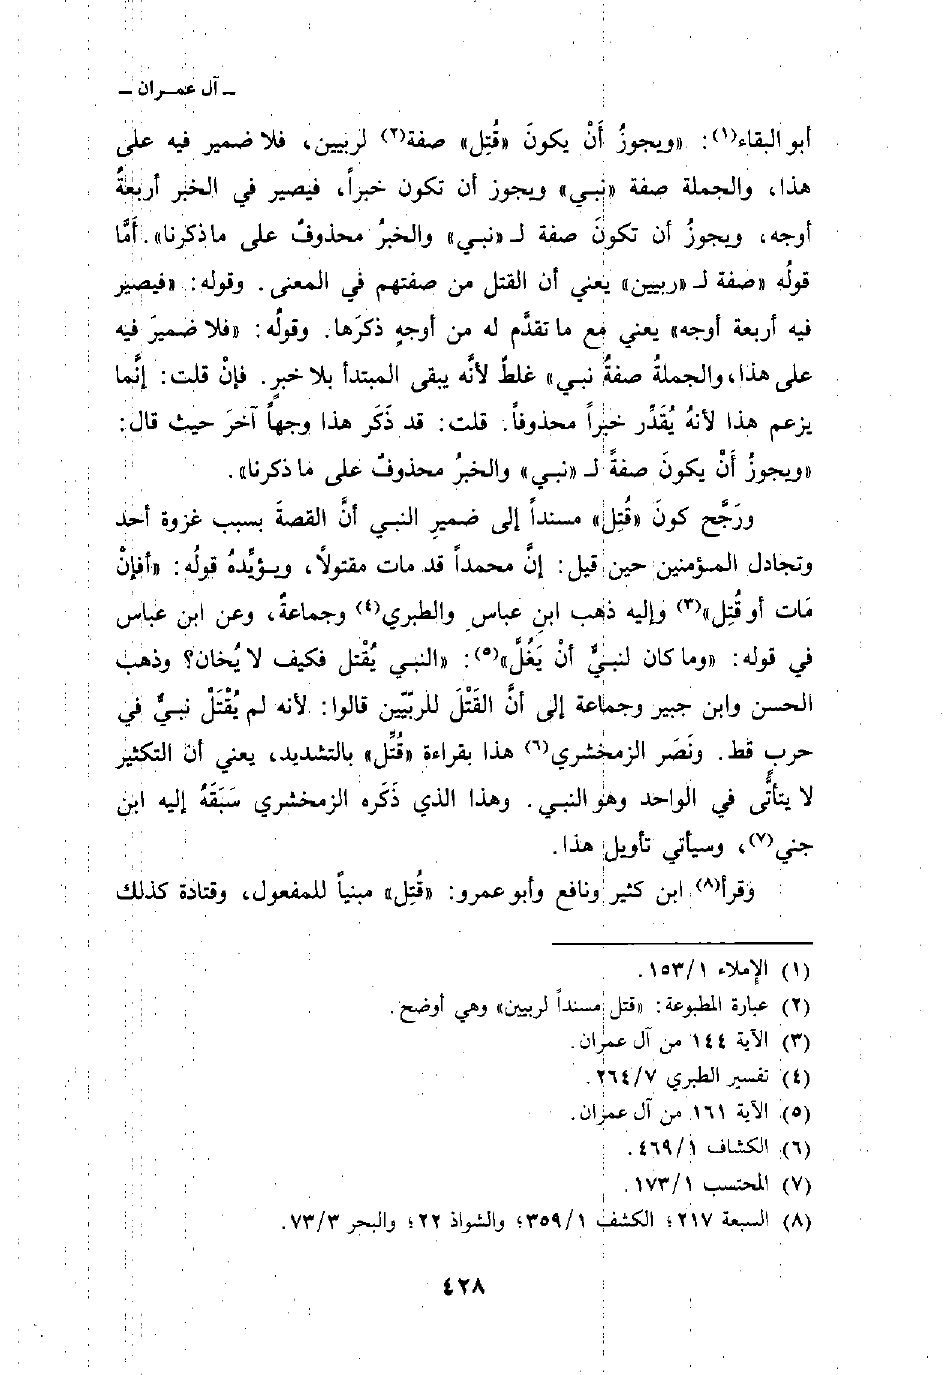 ـ آل عمـران ـ
أبو البقاء(١): «ويجوزُ أَنْ يكونَ «قُتِل» صفة(٢) لربيين، فلا ضمير فيه على
هذا، والجملة صفة «نبـي» ويجوز أن تكون خبراً، فيصير في الخبر أربعةُ
أوجه، ويجوزُ أن تكونَ صفة لـ «نبـي» والخبرُ محذوفٌ على ماذكرنا». أمَّا
قولُه «صفة لـ «ربيين» يعني أن القتل من صفتهم في المعنى. وقوله: «فيصير
فيه أربعة أوجه» يعني مع ماتقدَّم له من أوجهٍ ذكرَها. وقولُه: «فلا ضميرَ فيه
على هذا، والجملةُ صفةُ نبـي» غلطٌ لأنَّه يبقى المبتدأ بلا خبرٍ. فإنْ قلت: إنَّما
يزعم هذا لأنهُ يُقَدِّر خبراً محذوفاً. قلت: قد ذَكَر هذا وجهاً آخرَ حيث قال:
«ويجوزُ أَنْ يكونَ صفةً لـ «نبـي» والخبرُ محذوفٌ على ماذكرنا».
ورَجَّح كونَ «قُتِل» مسنداً إلى ضميرِ النبـي أنَّ القصةَ بسبب غزوة أحد
وتجادل المؤمنين حين قيل: إنَّ محمداً قد مات مقتولًا، ويـؤيِّدهُ قولُه: «أفإنْ
مَات أو قُتِل»(٣) وإليه ذهب ابنِ عباس والطبري(٤) وجماعةٌ، وعن ابن عباس
في قوله: «وما كان لنبـيٍّ أنْ يَغُلَّ»(٥): «النبـي يُقْتل فكيف لا يُخان؟ وذهب
الحسن وابن جبير وجماعة إلى أنَّ القَتْلَ للربِّيّين قالوا: لأنه لم يُقْتَلْ نبـيٌّ في
حربٍ قط. ونَصَر الزمخشري(٦) هذا بقراءة «قُتِّل» بالتشديد، يعني أن التكثير
لا يتأتَّى في الواحد وهو النبـي. وهذا الذي ذَكَره الزمخشري سَبَقَهُ إليه ابن
جني(٧)، وسيأتي تأويل هذا.
وقرأ(٨) ابن كثير ونافع وأبو عمرو: «قُتِل» مبنياً للمفعول، وقتادة كذلك
(١) الإملاء ١/١٥٣.
(٢) عبارة المطبوعة: «قتل مسنداً لربيين» وهي أوضح.
(٣) الآية ١٤٤ من آل عمران.
(٤) تفسير الطبري ٧/٢٦٤.
(٥) الآية ١٦١ من آل عمران.
(٦) الكشاف ١/٤٦٩.
(٧) المحتسب ١/١٧٣.
(٨) السبعة ٢١٧؛ الكشف ١/٣٥٩؛ والشواذ ٢٢؛ والبحر ٣/٧٣.
٤٢٨